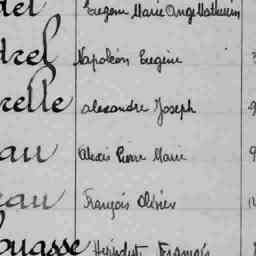 del Eugène Marie Ange Mathurin
drel Napoléon Eugène
relle Alexandre Joseph 9
au Alexis Pierre Marie 9
eau François Olivier
ouasse Hippolyte François